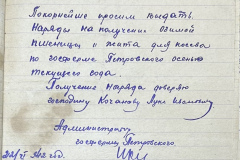 Покорнейше просим выдать
Наряды на получение озимой
пшеницы и жита для посева
по госферме Петровского осенью
текущего года.
Получение наряда доверяю
господину Коганову Луке
Администратор
госфермы Петровского.